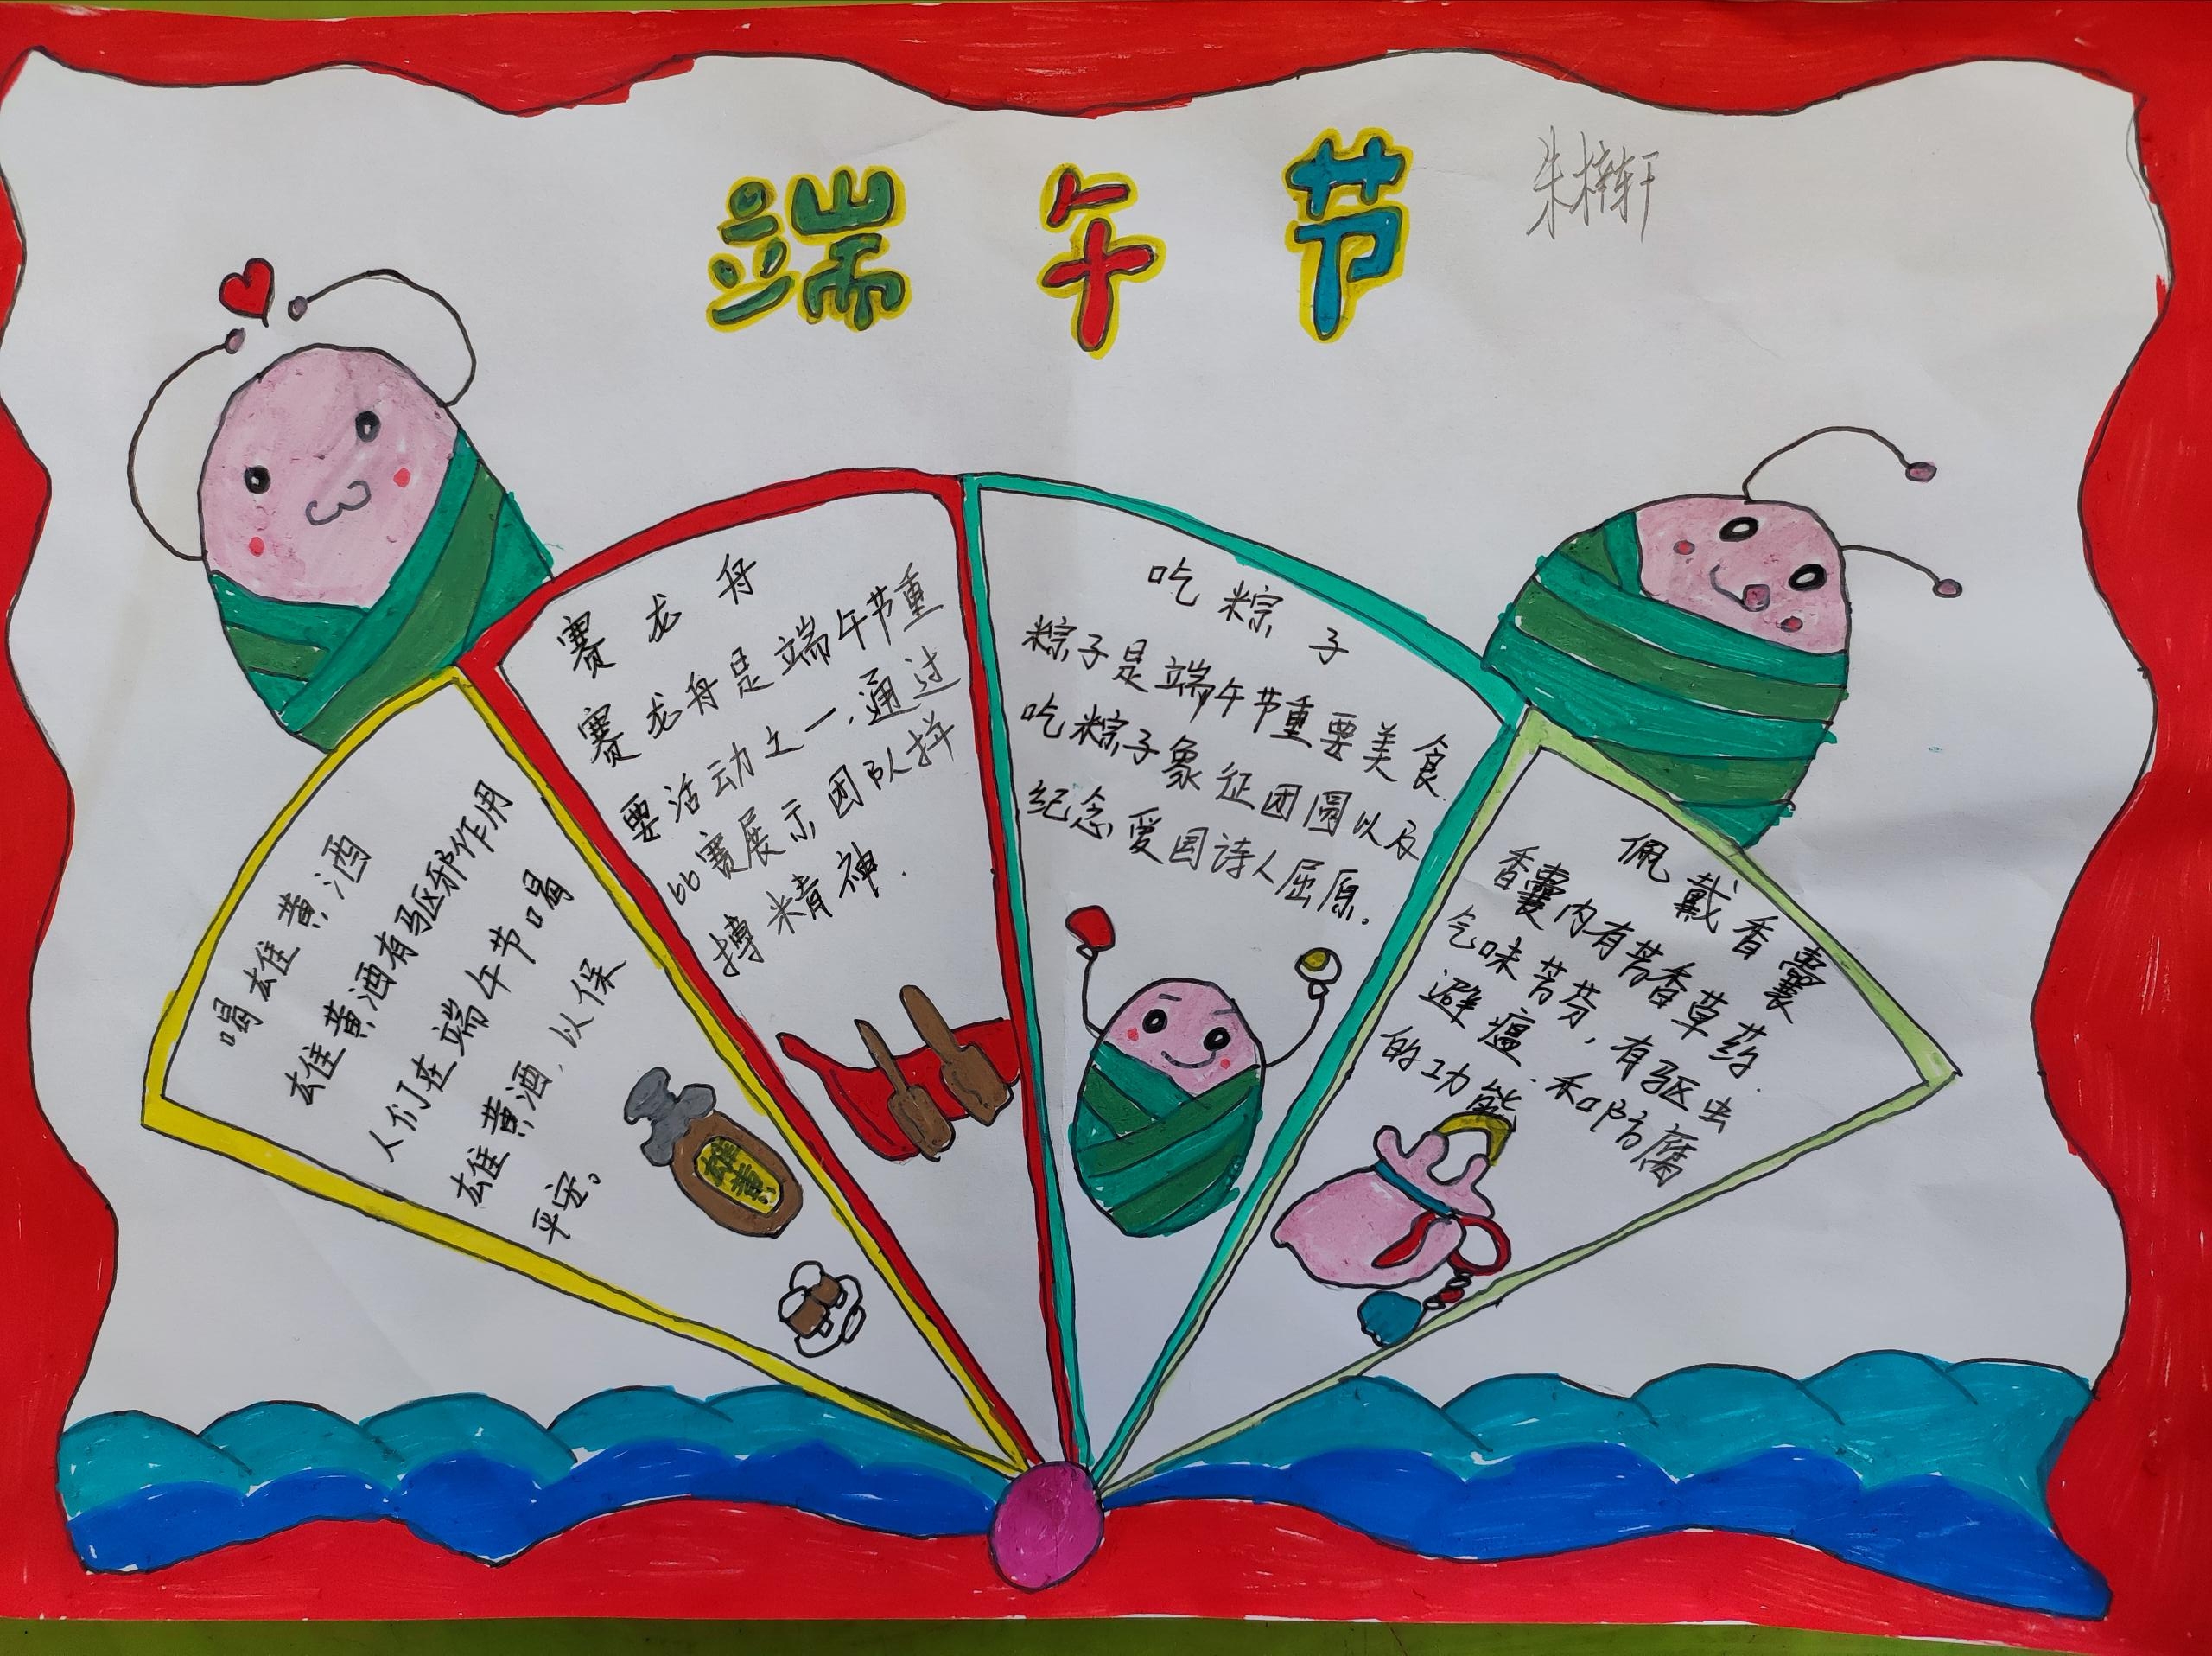 端午节
朱梓轩
喝雄黄酒
雄黄酒有驱邪作用
人们在端午节喝
雄黄酒，以保
平安。
雄黄
赛龙舟
赛龙舟是端午节重
要活动之一，通过
比赛展示团队拼
搏精神.
吃粽子
粽子是端午节重要美食.
吃粽子象征团圆以及
纪念爱国诗人屈原.
佩戴香囊
香囊内有芳香草药.
气味芳芬，有驱虫
避瘟.和防腐
的功能